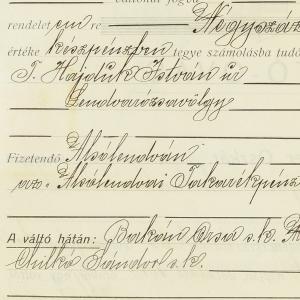 rendelet em re Négyszáz
értéke készpénzben tegye számolásba tudó
T. Hajduk István úr
Lendvarózsavölgy
Fizetendő Alsólendván
az Alsólendvai Takarékpénz
A váltó hátán: Bakán Orsa s.k.
Chilkó Sándor s.k.